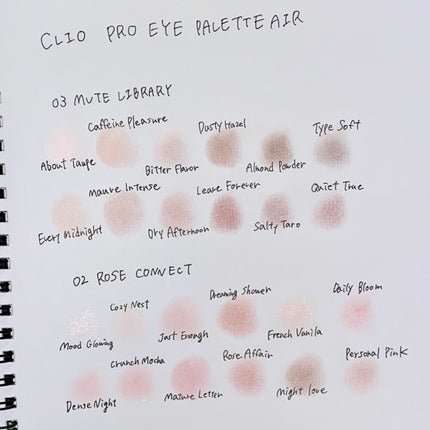 CLIO PRO EYE PALETTE AIR
03 MUTE LIBRARY
Caffeine Pleasure Dusty Hazel Type Soft
About Taupe Bitter Flavor Almond Powder
Mauve Intense Leave Forever Quiet True
Every Midnight Dry Afternoon Salty Taro
02 ROSE CONNECT
Cozy Nest Dreaming Shower Daily Bloom
Mood Glowing Just Enough French Vanila
Crunch Mocha Rose Affair Personal Pink
Dense Night Mature Letter Night love